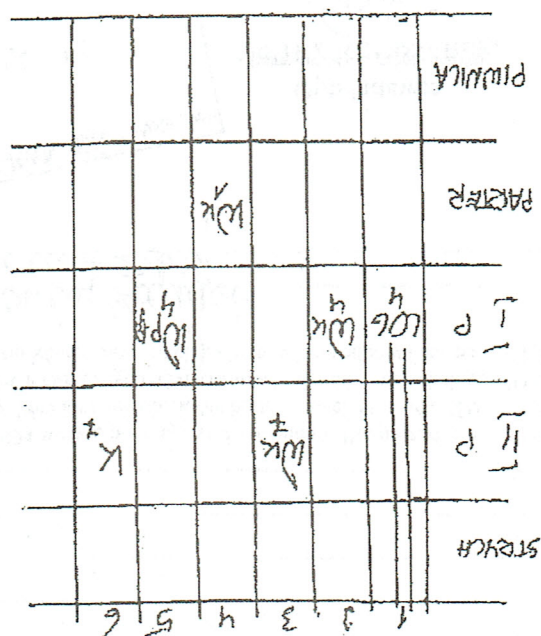 1 2 3 4 5 6
STRYCH
II P Wk K
7 7
I P WG Wk
4 4 4
PARTER Wk
1
PIWNICA